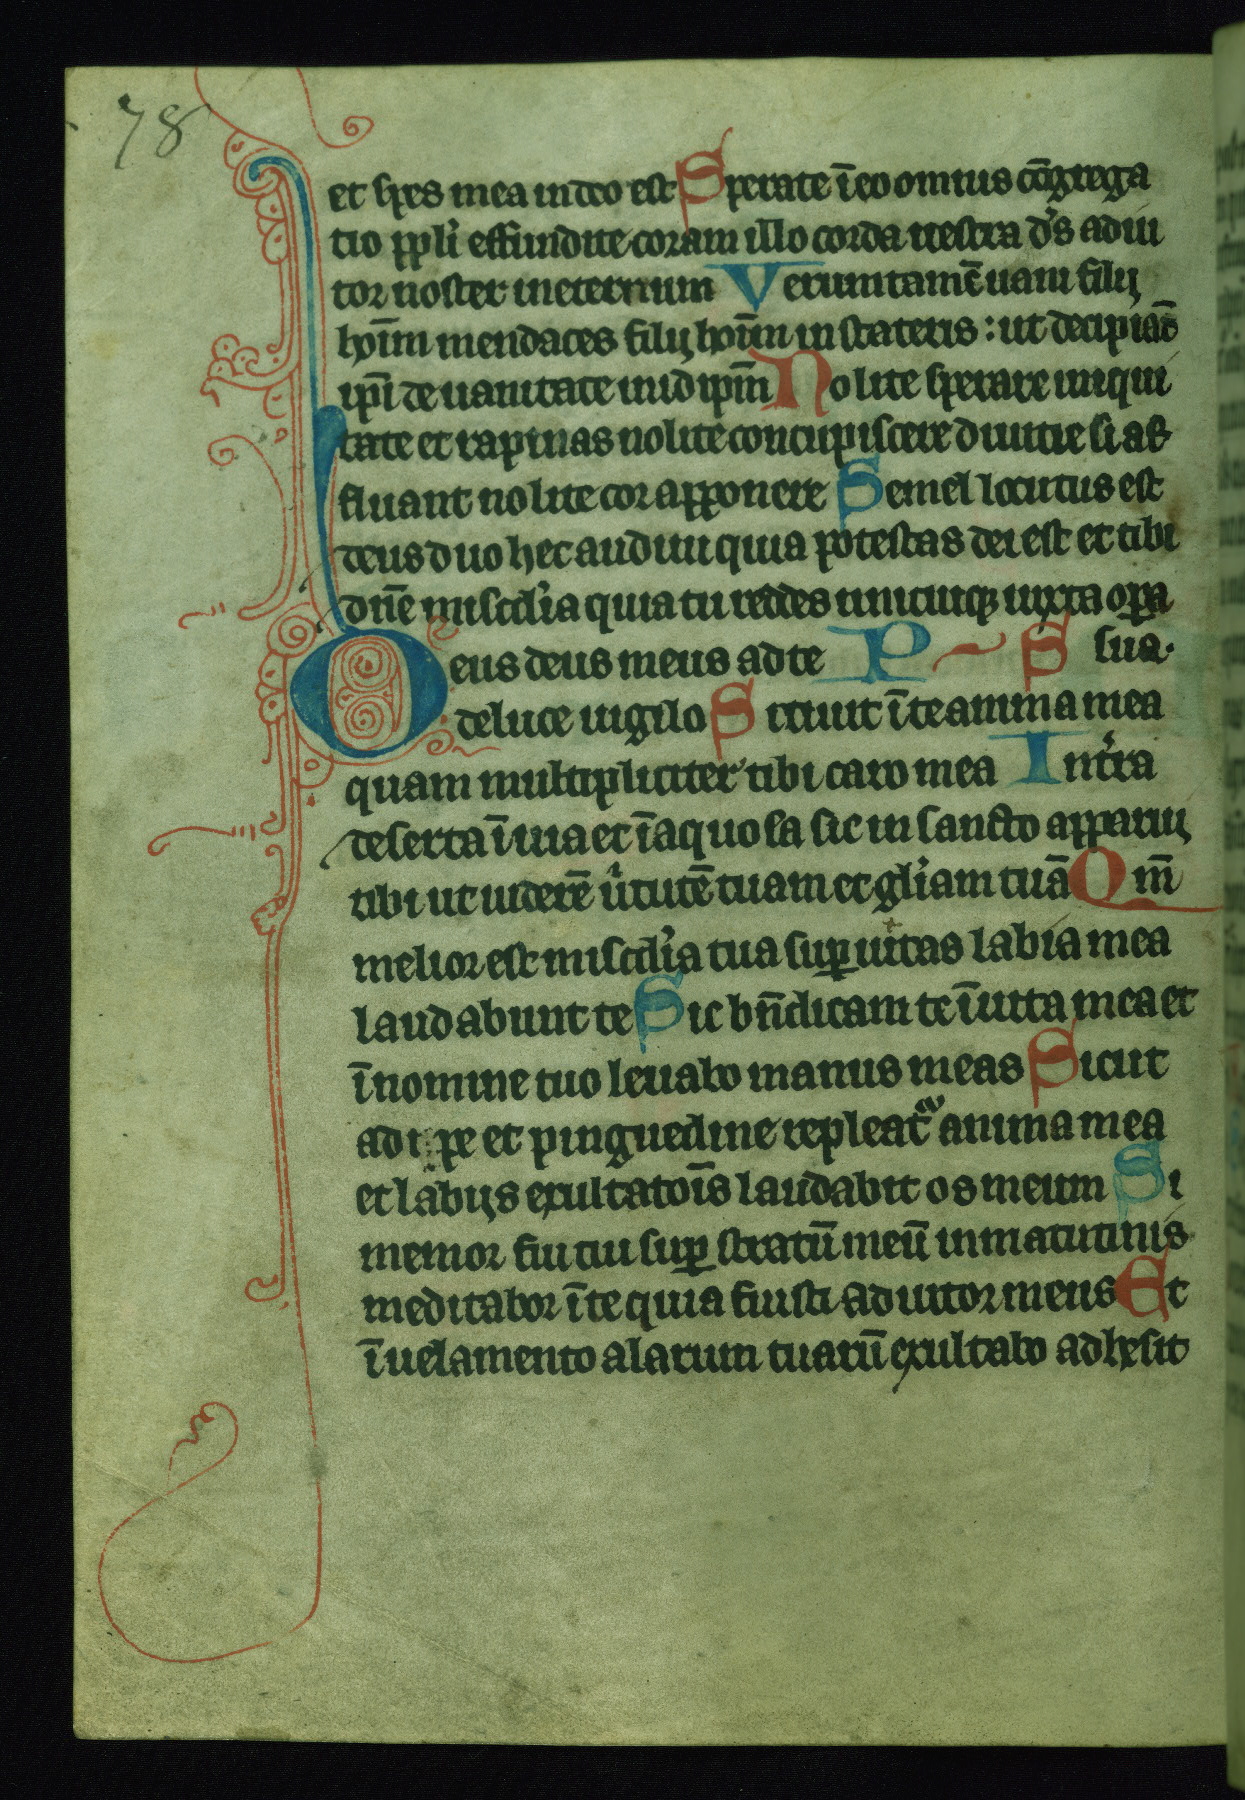 78
et spes mea in deo est Sperate ī eo omnis cōgrega
tio ppl'i effundite coram illo corda uestra d's adiu
tor noster in eternum Veruntamē uani filij
hoīm mendaces filij hoīm in stateris : ut decipiāt
ipī de uanitate in id ipm̄ Nolite sperare iniqui
tate et rapinas nolite concupiscere diuitie si af
fluant nolite cor apponere Semel locutus est
deus duo hec audiui quia potestas dei est et tibi
dn̄e misc̄dia quia tu reddes unicuiqꝫ iuxta oꝑa
Deus deus meus ad te P S sua.
de luce uigilo Sitiuit ī te anima mea
quam multipliciter tibi caro mea In t'ra
deserta ī uia et īaquosa sic in sancto apparui
tibi ut uiderē u'tutē tuam et gl'iam tuā Qm̄
melior est misc̄dia tua suꝑ uitas labia mea
laudabunt te Sic bn̄dicam te ī uita mea et
ī nomine tuo leuabo manus meas Sicut
adipe et pinguedine repleat᷑ anima mea
et labijs exultatoīs laudabit os meum Si
memor fui tui suꝑ stratū meū in matutinis
meditabor ī te quia fuisti adiutor meus Et
ī uelamento alarum tuarū exultabo adhesit